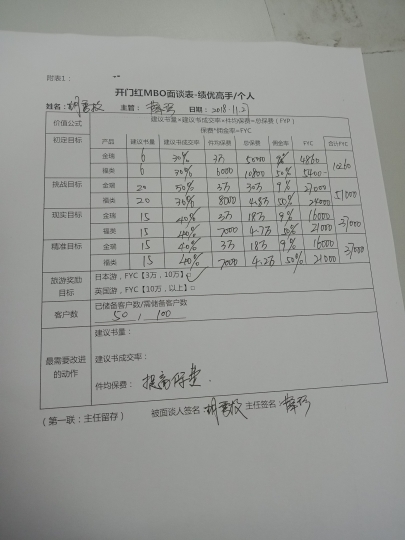 附表1：
开门红MBO面谈表-绩优高手/个人
姓名： 主管： 日期：2018.11.27
价值公式 建议书量*建议书成交率*件均保费=总保费（FYP）
保费*佣金率=FYC
初定目标 产品 建议书量 建议书成交率 件均保费 总保费 佣金率 FYC 合计FYC
金瑞 6 30% 3万 4860 10260
福类 6 30% 6000 10800 50% 5400
挑战目标 金瑞 20 50% 3万 30万 9% 27000 51000
福类 20 30% 8000 4.8万 50% 24000
现实目标 金瑞 15 40% 3万 18万 9% 16000 37000
福类 15 40% 7000 4.2万 50% 21000
精准目标 金瑞 15 40% 3万 18万 9% 16000 37000
福类 15 40% 7000 4.2万 50% 21000
旅游奖励目标 日本游，FYC【3万，10万】 ✓
英国游，FYC【10万，以上】□
客户数 已储备客户数/需储备客户数
50 , 100
最需要改进的动作 建议书量：
建议书成交率：
件均保费： 提高保费.
（第一联：主任留存） 被面谈人签名： 主任签名：